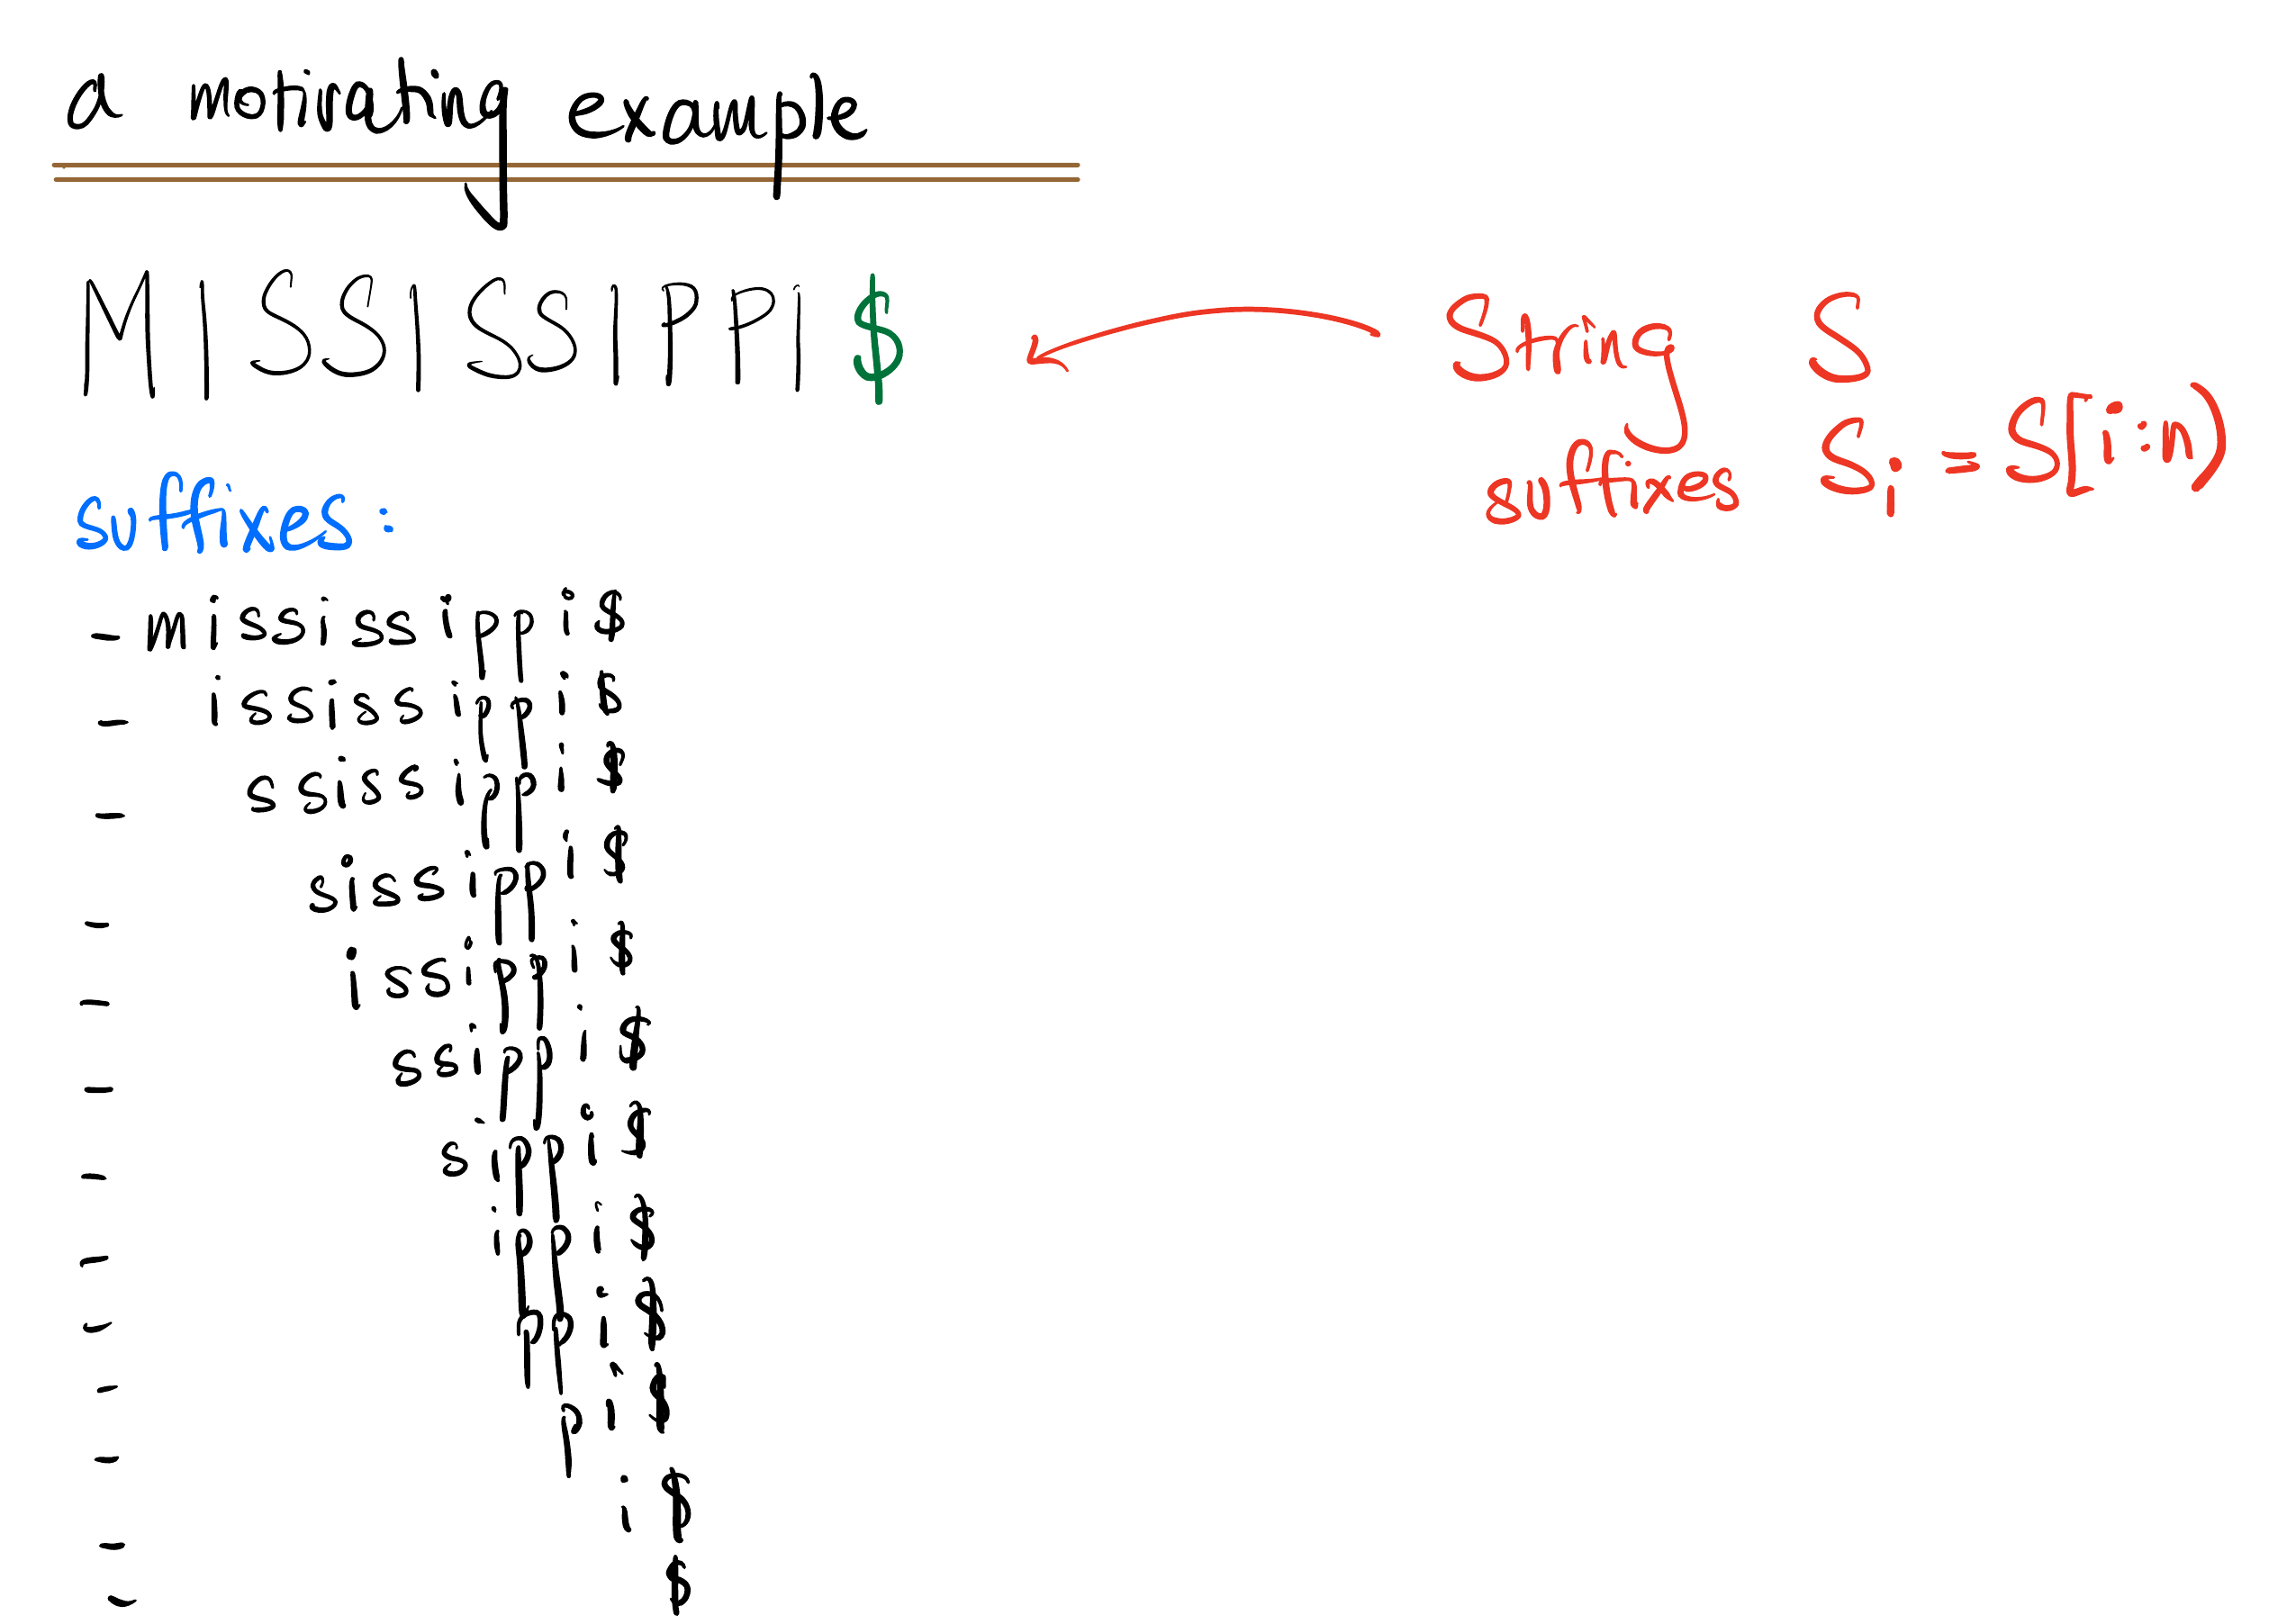 a motivating example
MISSISSIPPI$
String S
suffixes Si = S[i:n)
suffixes:
- mississippi$
- ississippi$
- ssissippi$
- sissippi$
- issippi$
- ssippi$
- sippi$
- ippi$
- ppi$
- pi$
- i$
- $